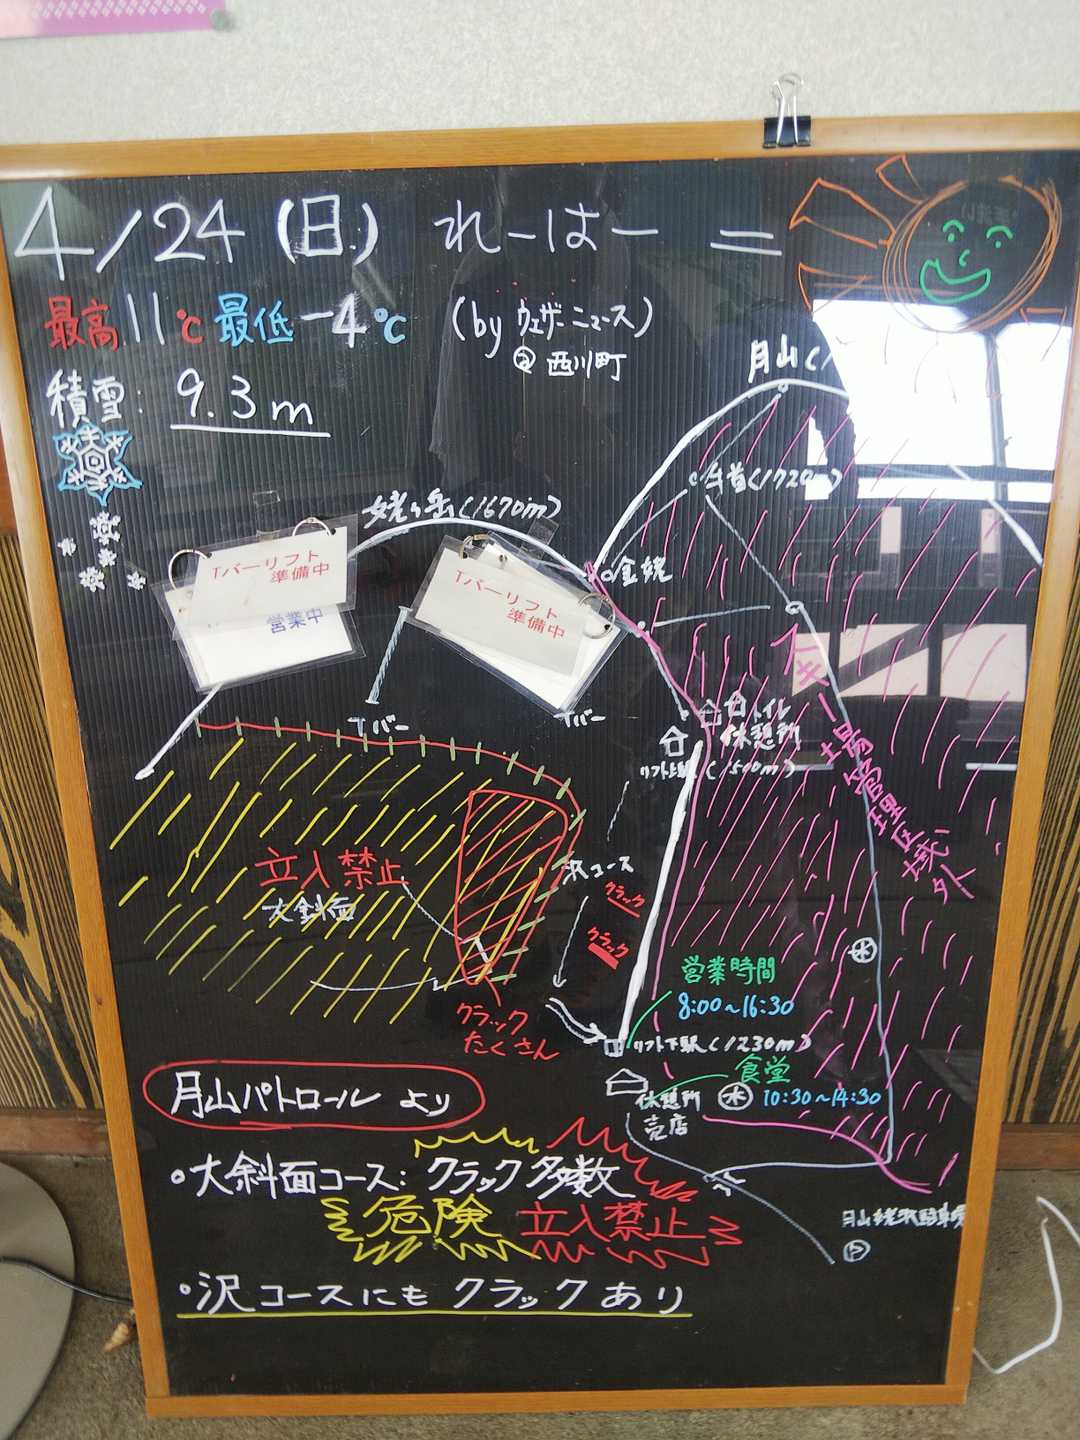 4/24(日) れーはー =
最高11℃ 最低-4℃ (by ウェザーニュース)
@ 西川町
積雪: 9.3m
月山(1
牛首(1720m)
姥ヶ岳(1670m)
金姥
Tバーリフト
準備中
営業中
Tバーリフト
準備中
Tバー
Tバー
トイレ
休憩所
リフト上駅(1500m)
スキー場管理区域外
立入禁止
大斜面
沢コース
クラック
クラック
クラック
たくさん
営業時間
8:00~16:30
リフト下駅(1230m)
食堂
休憩所
売店
水 10:30~14:30
水
月山パトロール より
•大斜面コース: クラック多数
危険 立入禁止
•沢コースにも クラックあり
月山姥沢駐車場
P